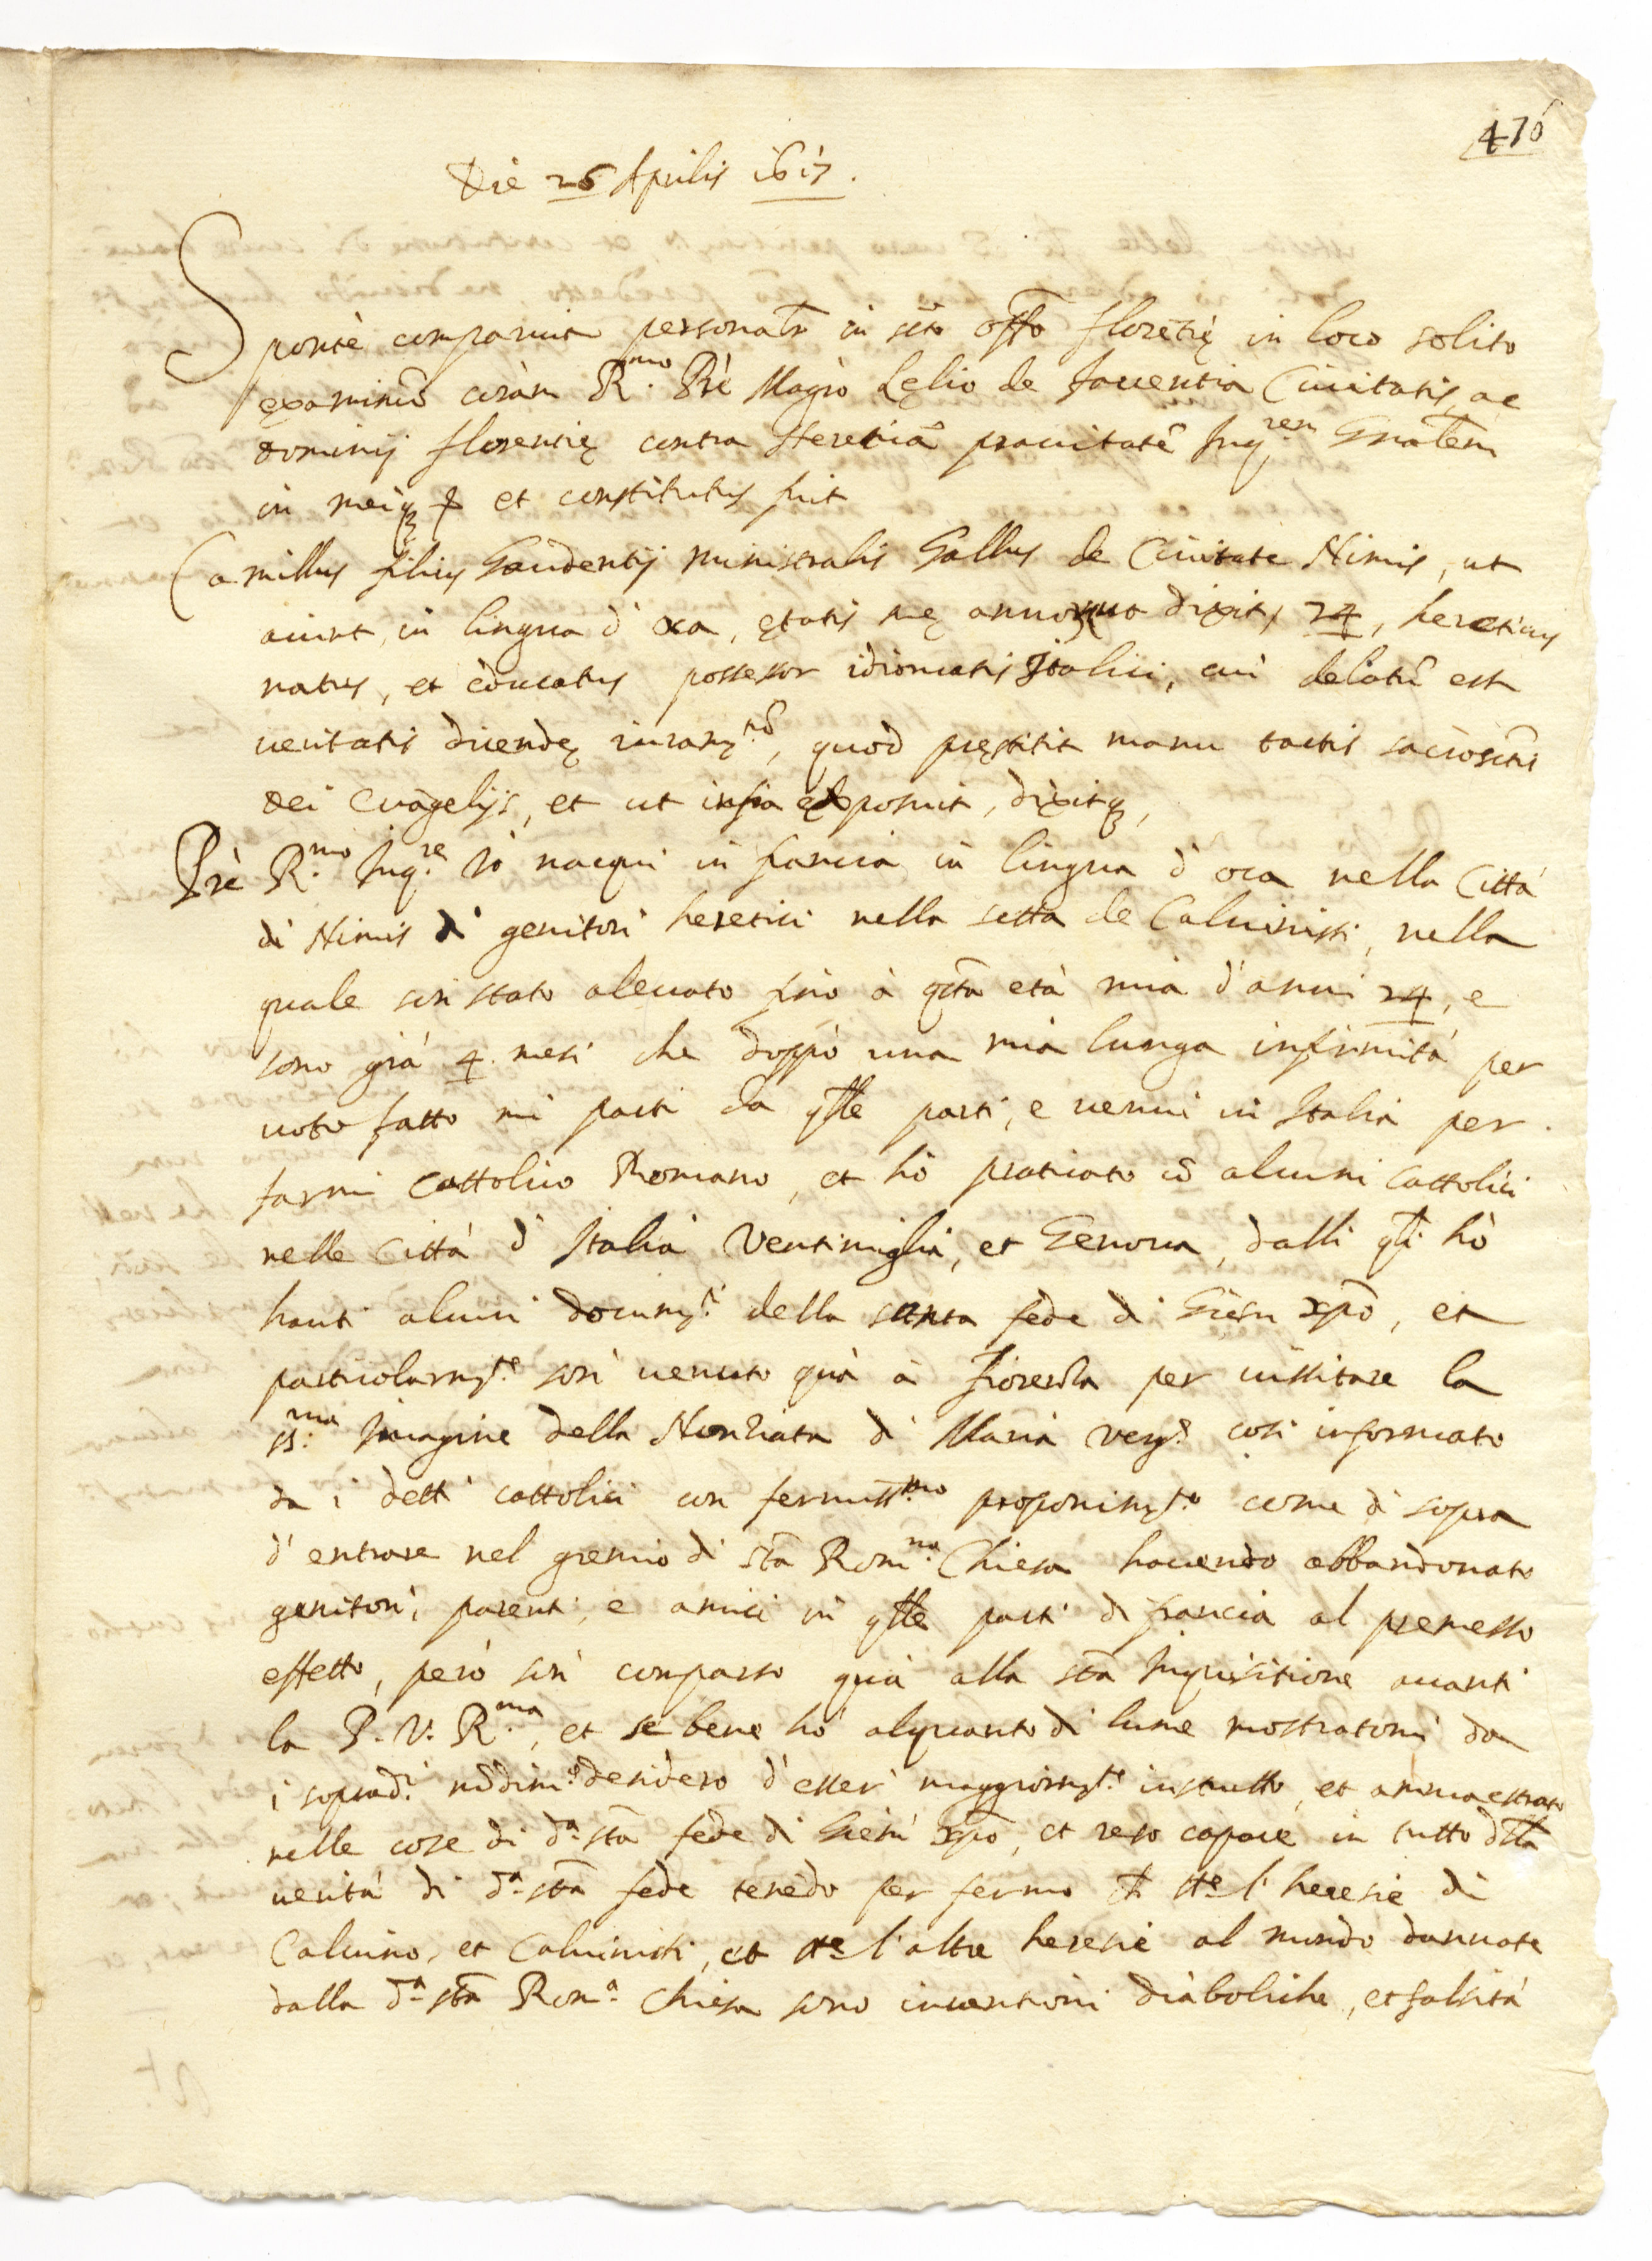 476
Die 26 Aprilis 1617.
Sponte comparuit personalr in scto offo florētię in loco solito
exāminū corām R.mo Prē Magrō Lęlio de Faventia Civitatis, ac
dominij florentię contra Hereticā pravitatē Inq.rem Gnālem
in meiq3 et constitutus fuit
Camillus filius Gaudentij Ministralis Gallus de Civitate Nimis, ut
aiunt, in lingua d'oca, ętatis suę annor ut dixit, 24, hereticus
natus, et educatus possessor idiomatis Italici, cui delatū est
veritatis dicendę iuram.tū, quod pręstitit manu tactis sacrosctis
Dei Evāgelijs, et ut infra exposuit, dixitq3,
Prē R.mo Inq.re Io nacqui in francia in lingua d'oca nella Città
di Nimis di genitori heretici nella setta de Calvinisti, nella
quale son stato alevato fino à qsta età mia d'anni 24, e
sono già 4 mesi che doppò una mia lunga infirmità per
voto fatto mi parti da qlle parti, e venni in Italia per
farmi Cattolico Romano, et hò praticato cō alcuni Cattolici
nelle Città d'Italia Ventimiglia, et Genova, dalli qli hò
hauti alcuni docum.ti della santa fede di Giesu xpo, et
particolarm.te son venuto quà à Fiorenza per vissitare la
ss.ma Imagine della Nontiata di Maria Verg.e così informato
da i detti cattolici con fermiss.mo proponim.to come di sopra
d'entrare nel gremio di sta Rom.na Chiesa havendo abbandonato
genitori, parenti, e amici in qlle parti di francia al premesso
effetto, però son comparso quà alla sta Inquisitione avanti
la P. V. R.ma, et se bene hò alquanto di lume mostratomi da
i soprad.i nōdim.o desidero d'esser maggiorm.te instrutto, et ammaestrato
nelle cose di d.a sta fede di Giesù xpo, et reso capace in tutto dlla
verità di d.a sta fede tenēdo per fermo ch tte l'heresie di
Calvino, et Calvinisti, et tte l'altre heresie al mondo dannate
dalla d.a sta Rom.a Chiesa sono inventioni diaboliche, et falsità